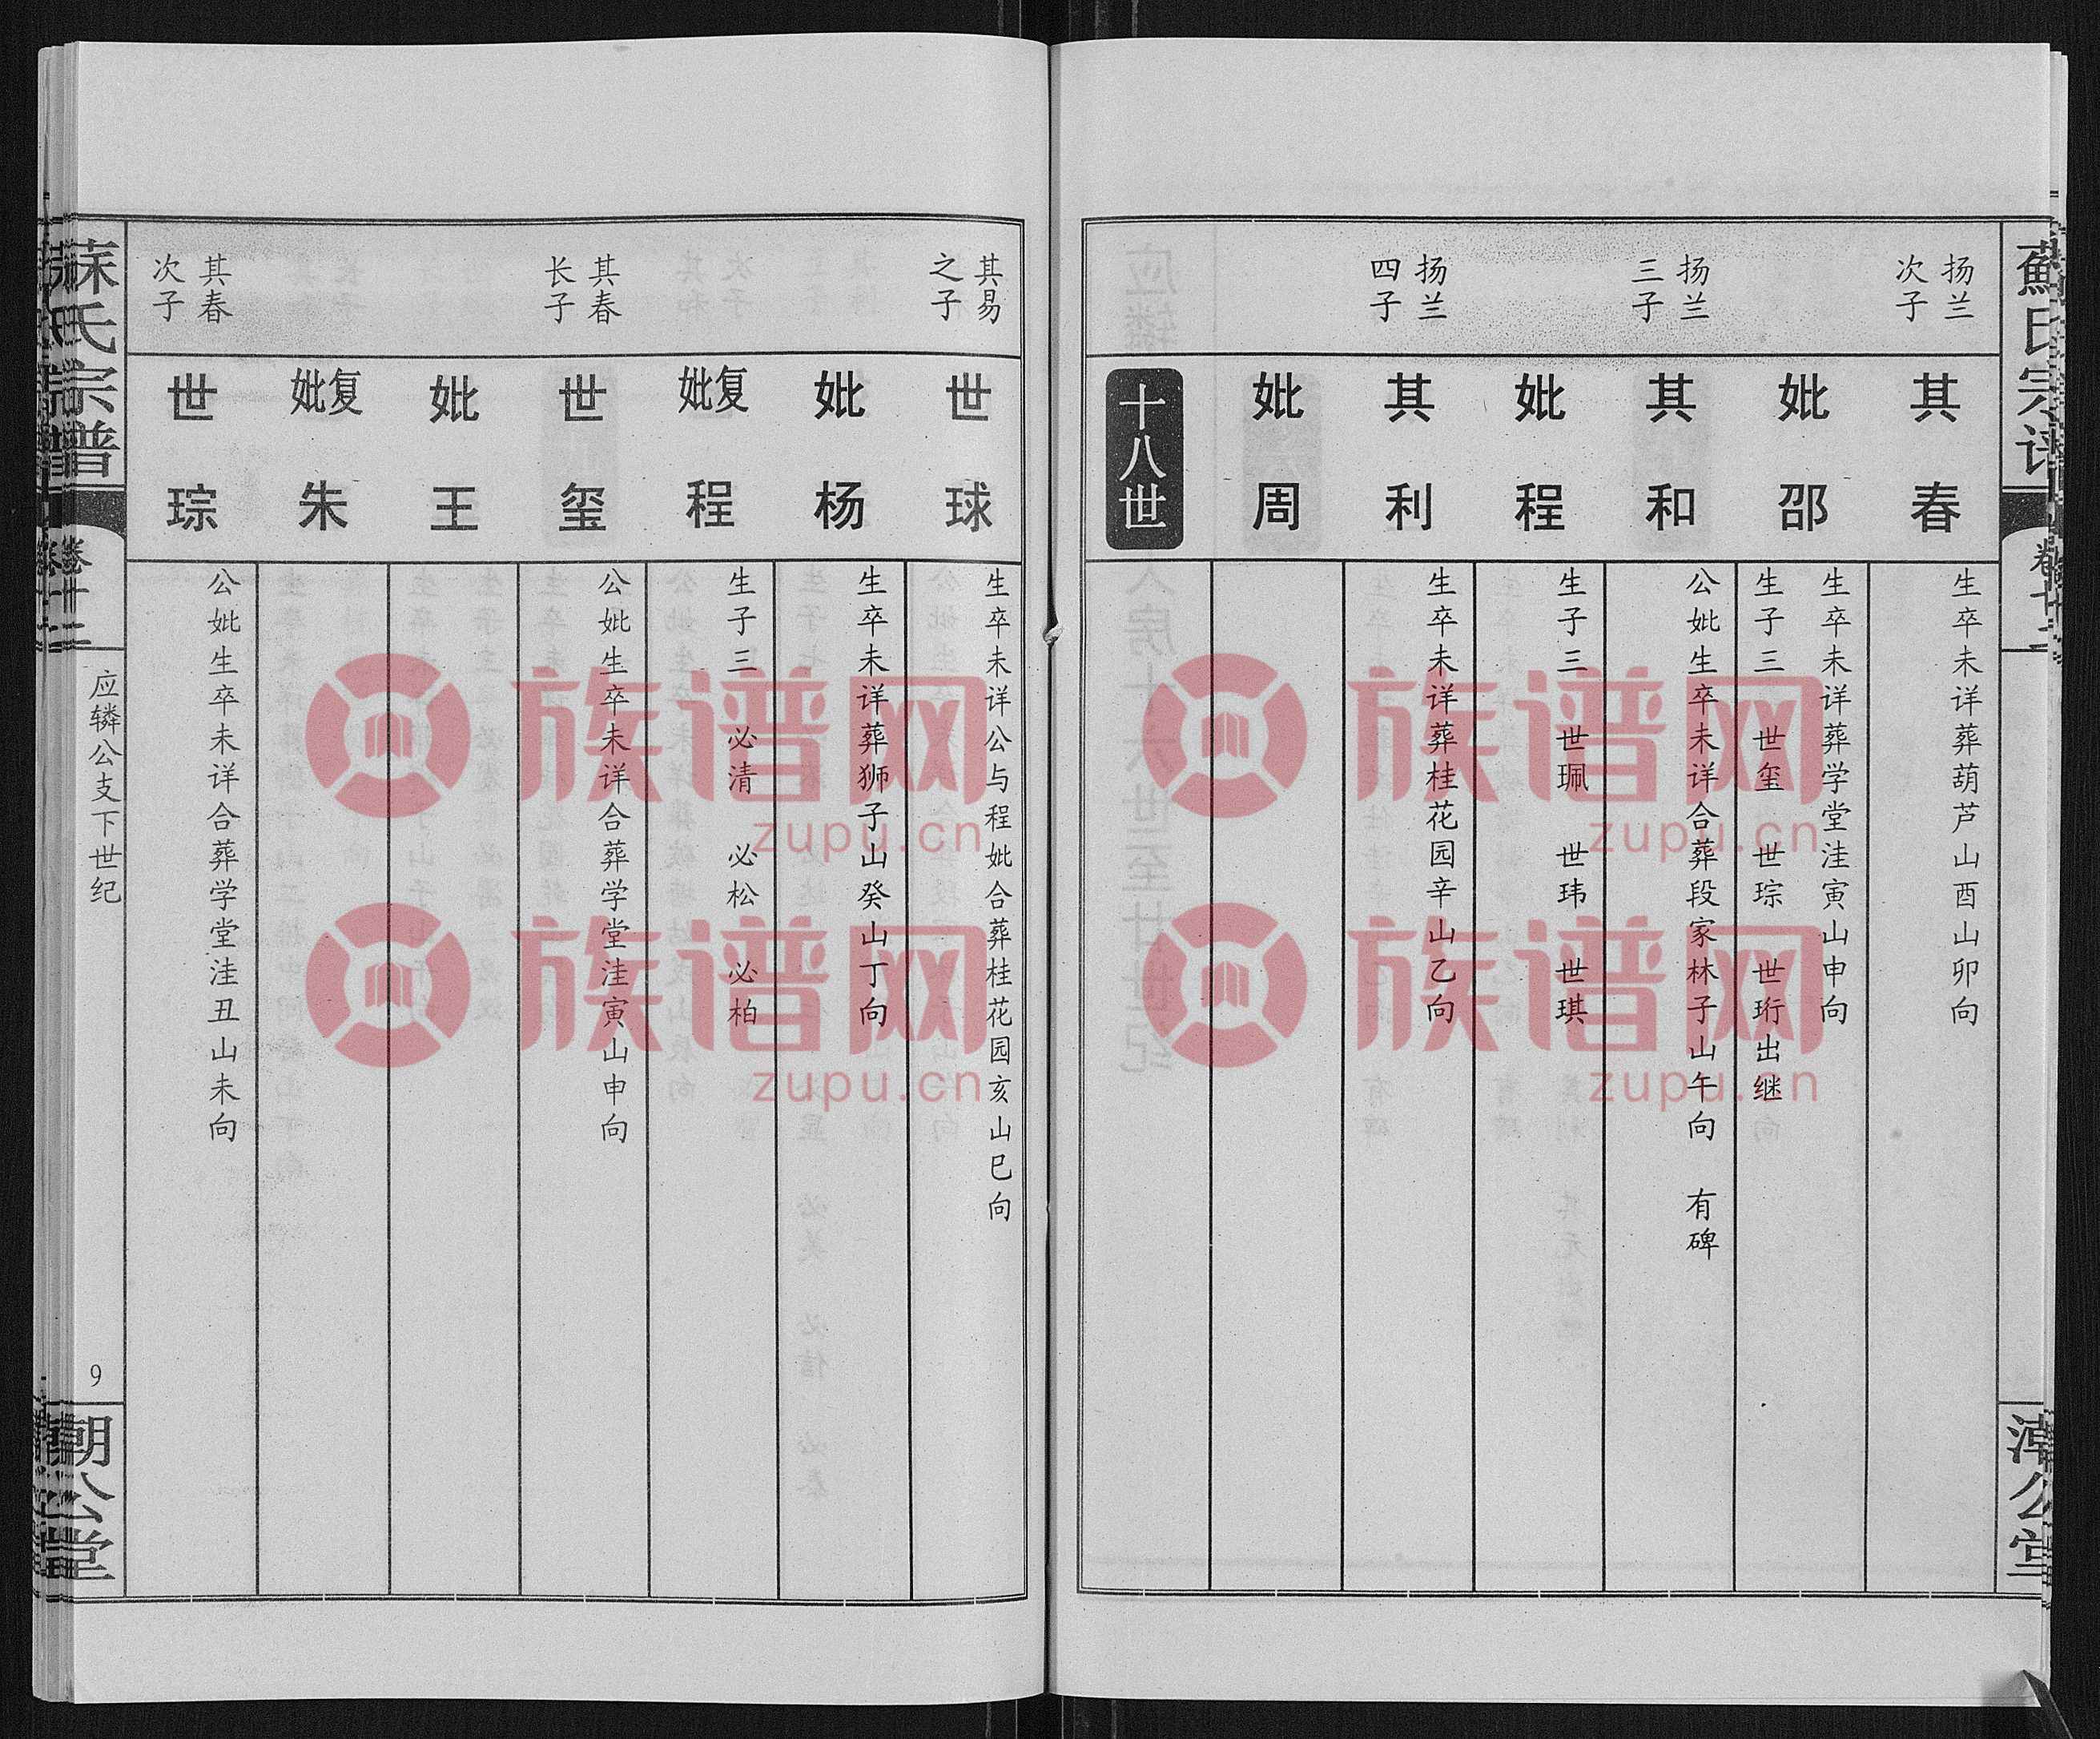 蘇氏宗谱
卷十二
潮公堂
扬兰
次子
其春
生卒未详葬葫芦山酉山卯向
妣邵
生卒未详葬学堂洼寅山申向
生子三 世玺 世琮 世珩出继
扬兰
三子
其和
公妣生卒未详合葬段家林子山午向 有碑
妣程
生子三 世珮 世玮 世琪
扬兰
四子
其利
生卒未详葬桂花园辛山乙向
妣周
十八世
其易
之子
世球
生卒未详公与程妣合葬桂花园亥山巳向
妣杨
生卒未详葬狮子山癸山丁向
复妣程
生子三 必清 必松 必柏
其春
长子
世玺
公妣生卒未详合葬学堂洼寅山申向
妣王
复妣朱
其春
次子
世琮
公妣生卒未详合葬学堂洼丑山未向
氏宗譜
卷十二
应辚公支下世纪
9
公堂
族谱网
zupu.cn
族谱网
zupu.cn
族谱网
zupu.cn
族谱网
zupu.cn